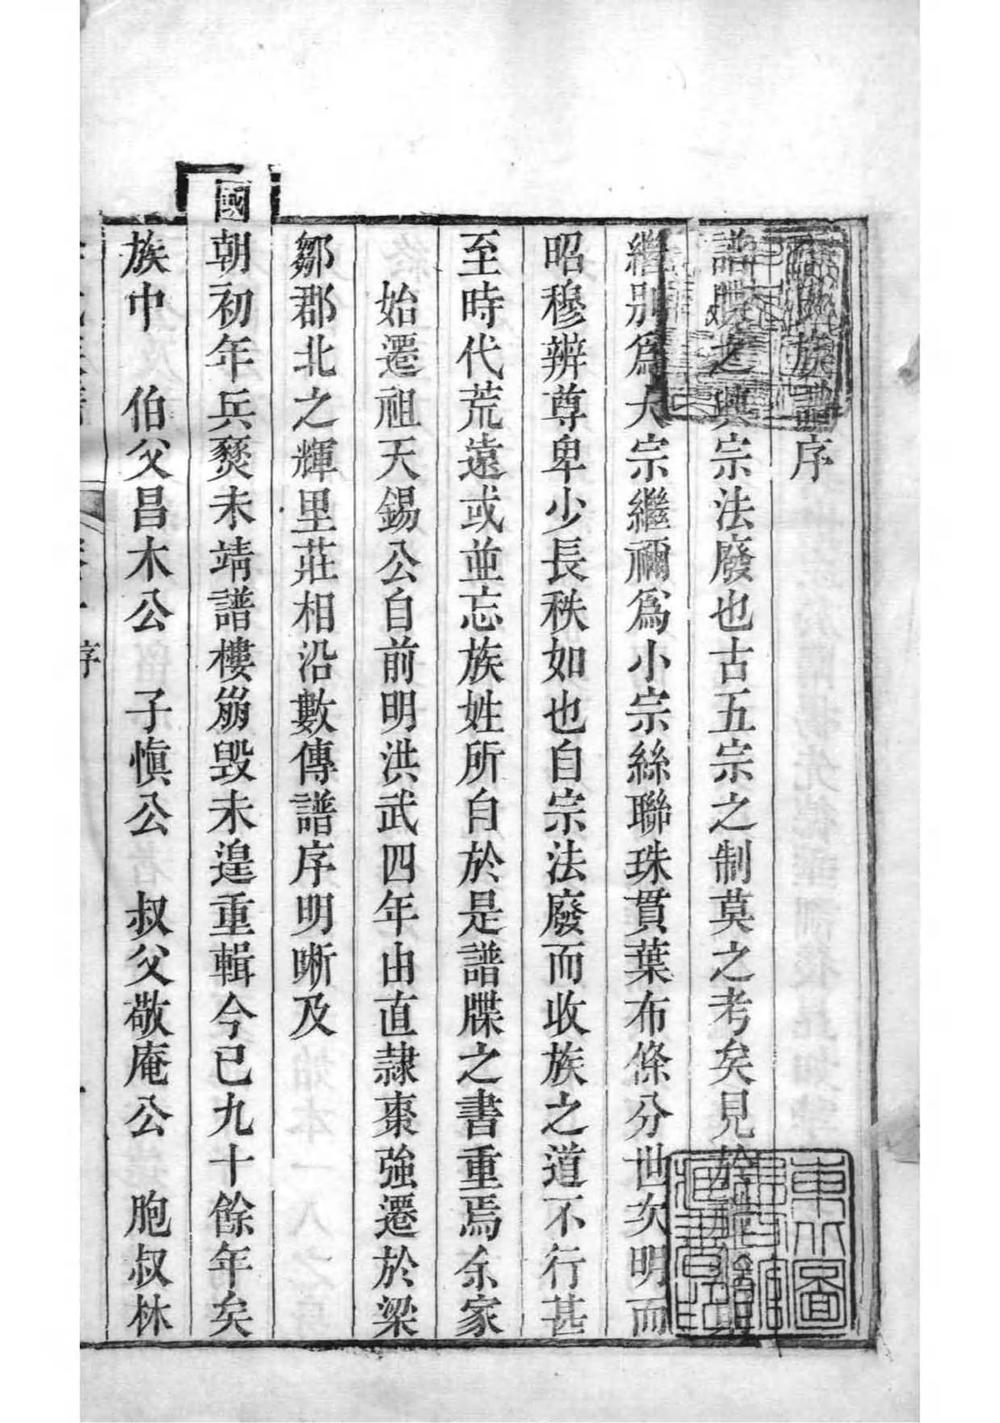 族譜序
譜牒之興宗法廢也古五宗之制莫之考矣見於禮
繼別爲大宗繼禰爲小宗絲聯珠貫葉布條分世次明而
昭穆辨尊卑少長秩如也自宗法廢而收族之道不行甚
至時代荒遠或並忘族姓所自於是譜牒之書重焉余家
始遷祖天錫公自前明洪武四年由直隷棗強遷於梁
鄒郡北之輝里莊相沿數傳譜序明晰及
國朝初年兵燹未靖譜樓崩毀未遑重輯今已九十餘年矣
族中 伯父昌木公 子慎公 叔父敬庵公 胞叔林
序